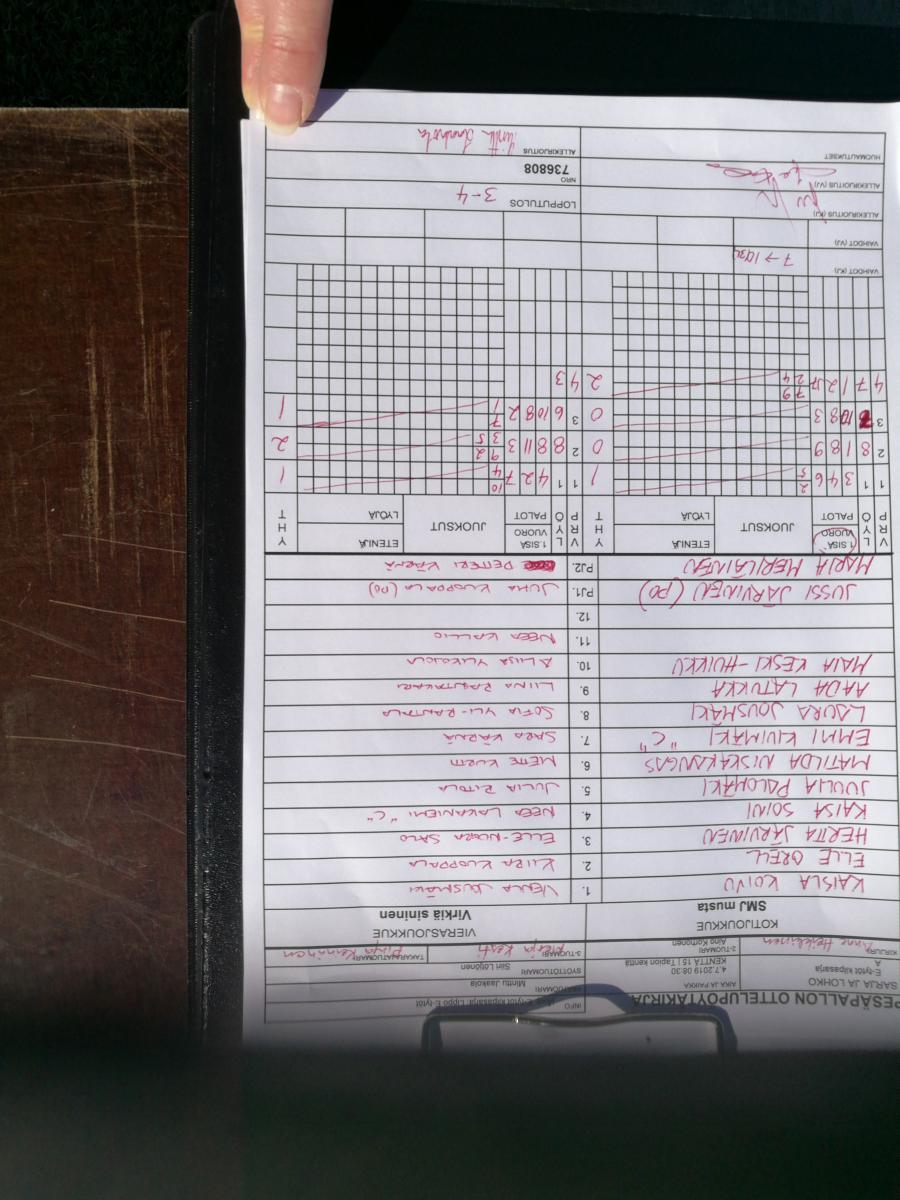 PESÄPALLON OTTELUPÖYTÄKIRJA
INFO
E-tytöt kilpasarja
SARJA JA LOHKO
E-tytöt kilpasarja
A
AIKA JA PAIKKA
4.7.2019 08:30
KENTTÄ 151 Tapion kenttä
Minttu Jaakola
SYÖTTÖTUOMARI
Siiri Löytönen
KIRJURI
2-TUOMARI
Aino Komonen
3-TUOMARI
TAKARAJATUOMARI
KOTIJOUKKUE
SMJ musta
VIERASJOUKKUE
Virkiä sininen
KAISLA KOIVU 1. VENLA JOUSMÄKI
ELLE ORELL 2. KIIRA KUOPPALA
HERTTA JÄRVINEN 3. ELLE-NOORA SALO
KAISA SOINI 4. NEEA LAKANIEMI "C"
JUULIA PALOMÄKI 5. JULIA RITOLA
MATILDA NISKAKANGAS 6. METTE KURTTI
EMMI KIVIMÄKI "C" 7. SARA VÄRNÄ
LAURA JOUSMÄKI 8. SOFIA YLI-RANTALA
AADA LATUKKA 9. LIINA
MAIA KESKI-HUIKKU 10. ALIISA YLIKOJOLA
11. NEEA KALLIO
12.
JUSSI JÄRVINEN (PO) PJ1. JUHA KUOPPALA (PO)
MARIA MERILÄINEN PJ2. PETTERI VÄRNÄ
VRP LYÖ 1.SISÄ VUORO PALOT JUOKSUT ETENIJÄ LYÖJÄ YHT
VRP LYÖ 1.SISÄ VUORO PALOT JUOKSUT ETENIJÄ LYÖJÄ YHT
1 1 3 4 6 2 5 1
1 1 4 2 7 10 4 1
2 8 1 8 9 0
2 8 8 11 3 9 2 3 5 2
3 10 8 3 0
3 6 10 8 2 7 1 1
4 7 1 2 7 9 2 4 2
4 3
VAIHDOT (KJ)
7 →
VAIHDOT (VJ)
ALLEKIRJOITUS (KJ)
LOPPUTULOS 3-4
ALLEKIRJOITUS (VJ)
NRO
736808
HUOMAUTUKSET
ALLEKIRJOITUS